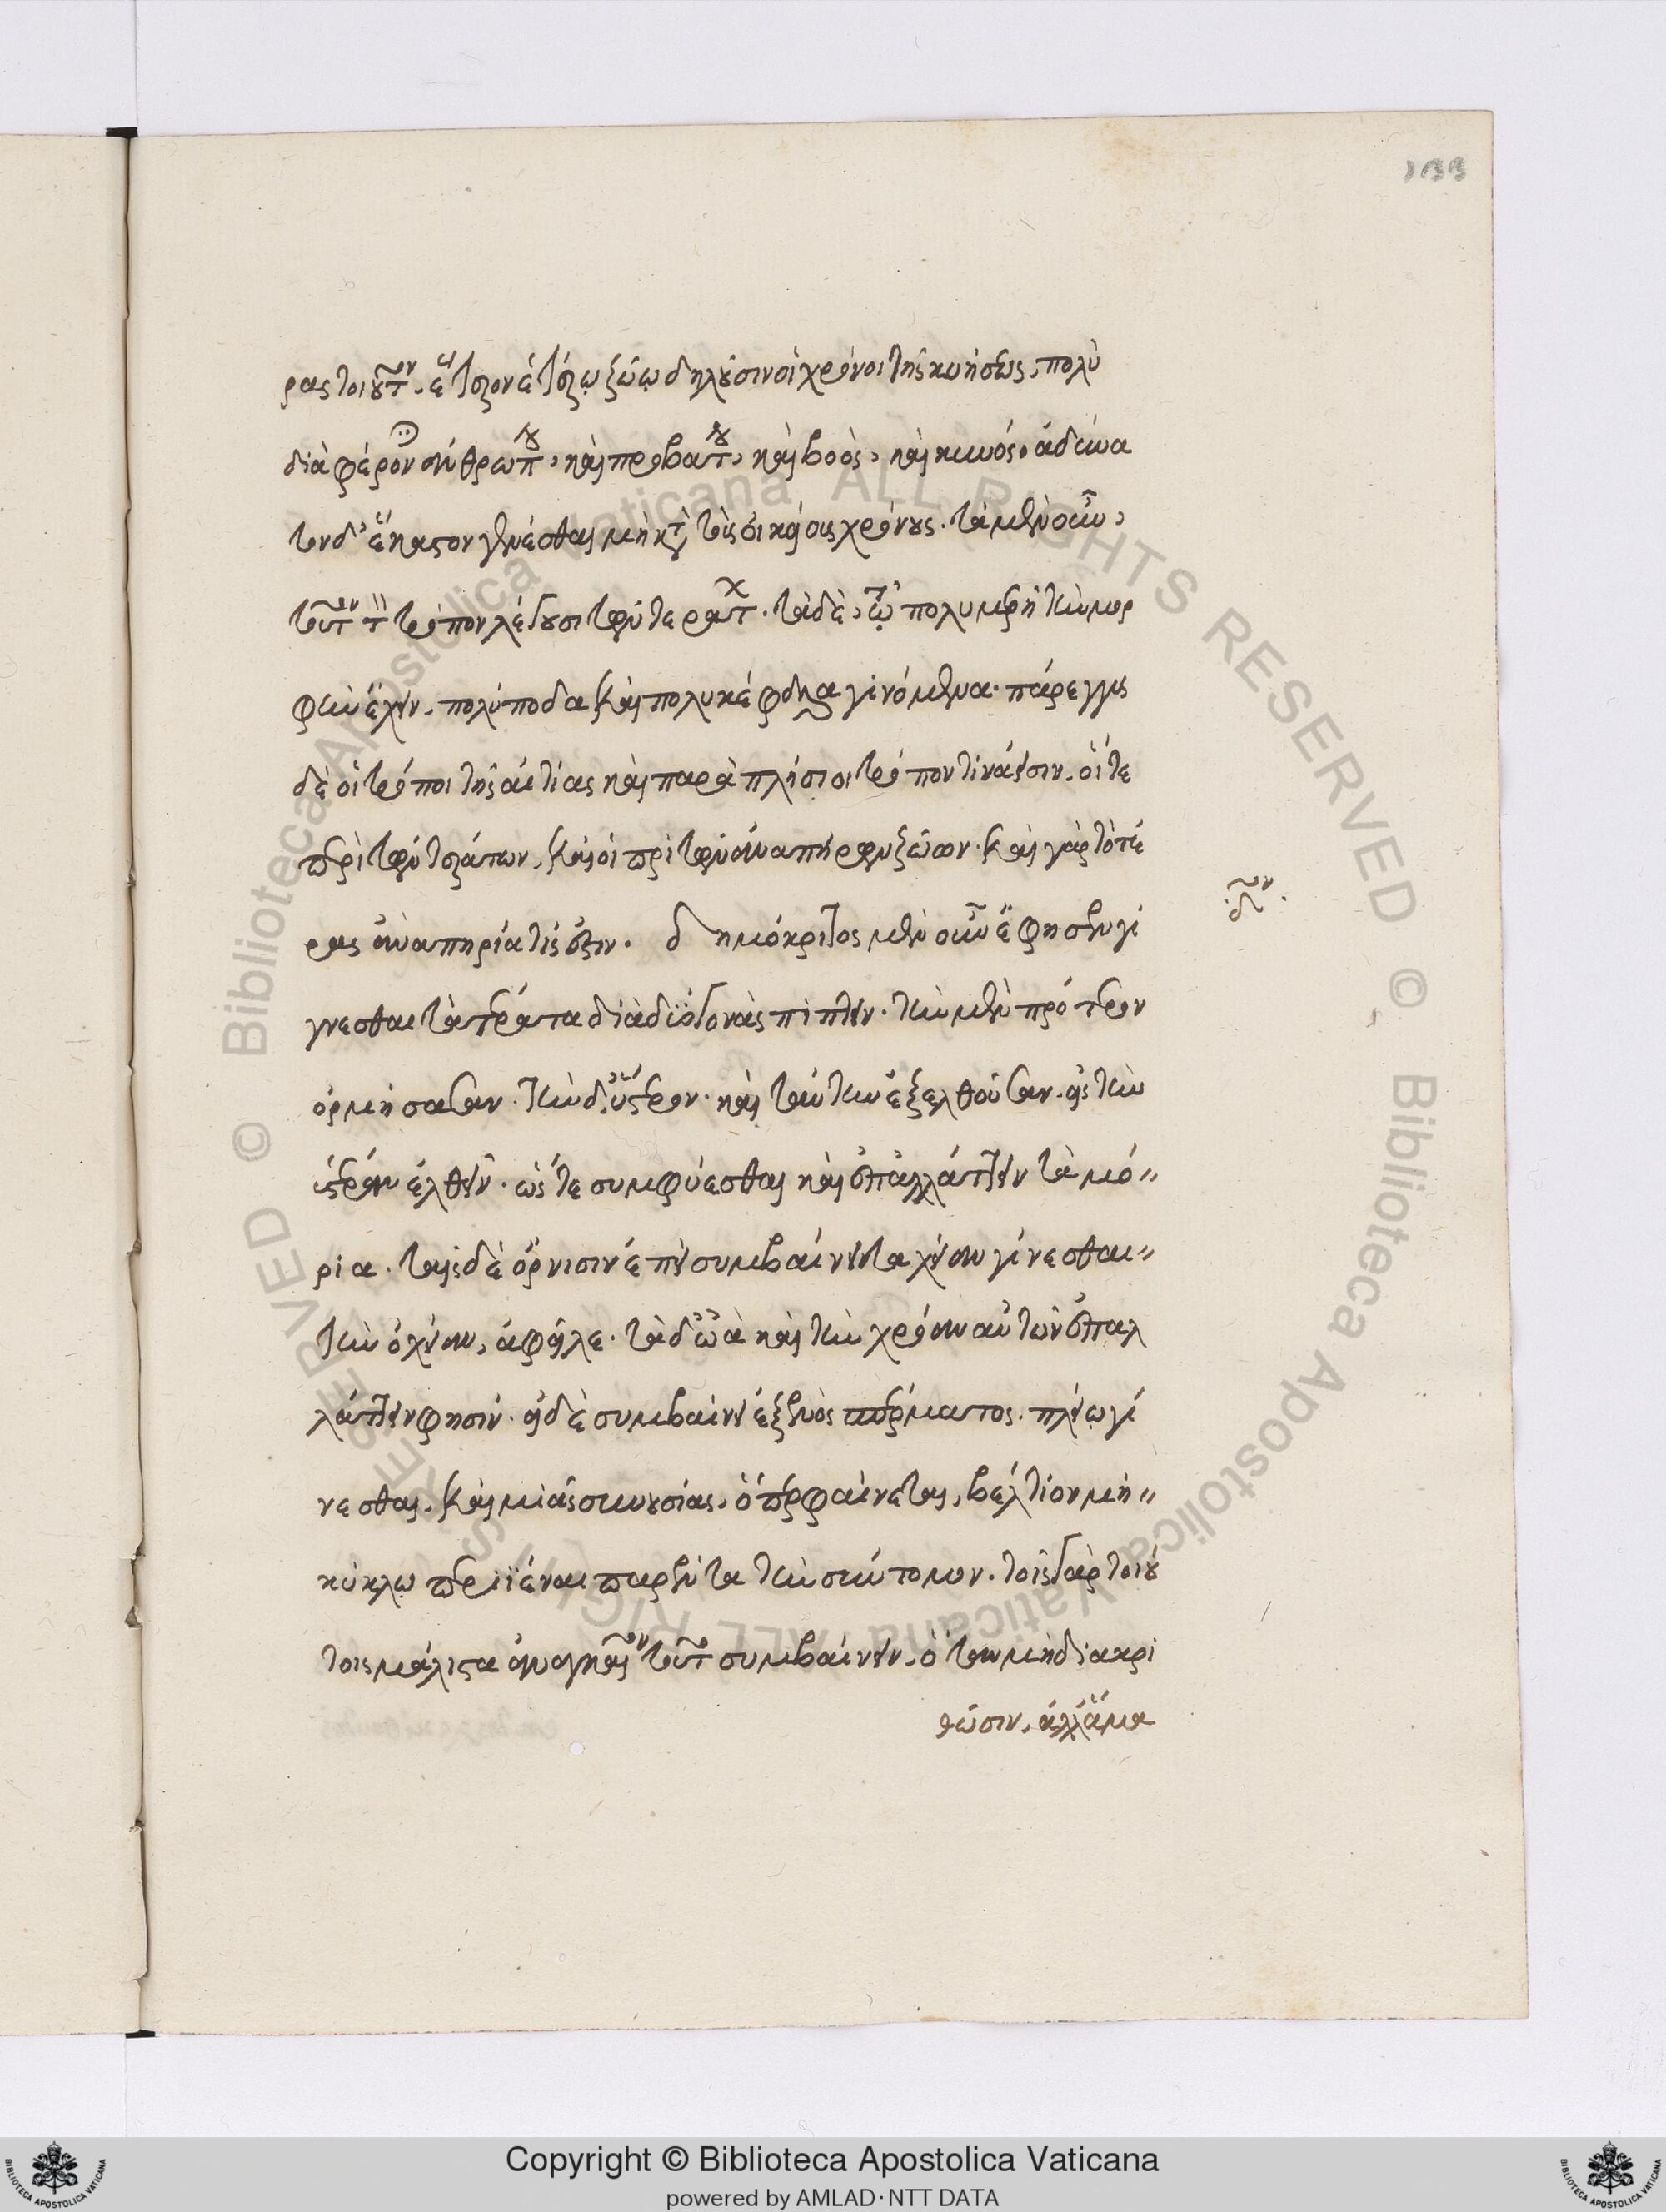 133
ρας τοιοῦτον. ἕτερον ἑτέρῳ ζώῳ δηλοῦσιν οἱ χρόνοι τῆς κυήσεως, πολὺ
διαφέρον ἀνθρώπου, καὶ προβάτου, καὶ βοὸς, καὶ κυνός. ἀδύνα
τον δ' ἕκαστον γενέσθαι μὴ κατὰ τοὺς οἰκείους χρόνους. τὰ μὲν οὖν
τοῦτον τὸν τρόπον λέγουσι τῶν τεράτων. τὰ δὲ, τῷ πολυμερῆ τὴν μορ
φὴν ἔχειν. πολύποδα καὶ πολυκέφαλα γινόμενα. πάρεγγυς
δὲ οἱ τρόποι τῆς αἰτίας καὶ παραπλήσιοι τρόπον τινά εἰσιν. οἵ τε
περὶ τῶν τεράτων, καὶ οἱ περὶ τῶν ἀναπήρων ζώων. καὶ γὰρ τὸ τέ
ρας ἀναπηρία τίς ἐστιν. δημόκριτος μὲν οὖν ἔφησεν γί
γνεσθαι τὰ τέρατα διὰ δύο γονὰς πίπτειν. τὴν μὲν πρότερον
ὁρμήσασαν. τὴν δ' ὕστερον. καὶ ταύτην ἐξελθοῦσαν. εἰς τὴν
ὑστέραν ἐλθεῖν. ὥστε συμφύεσθαι καὶ ἐπαλλάττειν τὰ μό"
ρια. ταῖς δὲ ὄρνισιν ἐπεὶ συμβαίνει ταχεῖαν γίνεσθαι"
τὴν ὀχείαν, ἀφεῖλε. τὰ δ' ὠὰ καὶ τὴν χρόαν αὐτῶν ἐπαλ
λάττειν φησίν. εἰ δὲ συμβαίνει ἐξ ἑνὸς σπέρματος. πλείω γί
νεσθαι. καὶ μιᾶς συνουσίας. ὅπερ φαίνεται, βέλτιον μὴ"
κύκλῳ περιϊέναι παρέντα τὴν σύντομον. τοῖς γὰρ τοιού
τοις μάλιστα ἀναγκαῖον τοῦτο συμβαίνειν. ὅταν μὴ διακρι
θῶσιν, ἀλλ' ἅμα